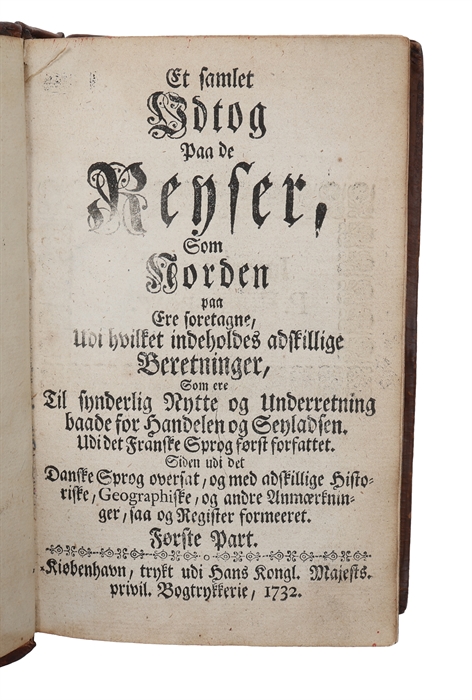 Et samlet
Vdtog
Paa de
Reyser,
Som
Norden
paa
Ere foretagne,
Udi hvilket indeholdes adskillige
Beretninger,
Som ere
Til synderlig Nytte og Underretning
baade for Handelen og Seyladsen.
Udi det Franske Sprog først forfattet.
Siden udi det
Danske Sprog oversat, og med adskillige Histo-
riske, Geographiske, og andre Anmærknin-
ger, saa og Register formeeret.
Første Part.
Kiøbenhavn, trykt udi Hans Kongl. Majests.
privil. Bogtrykkerie, 1732.